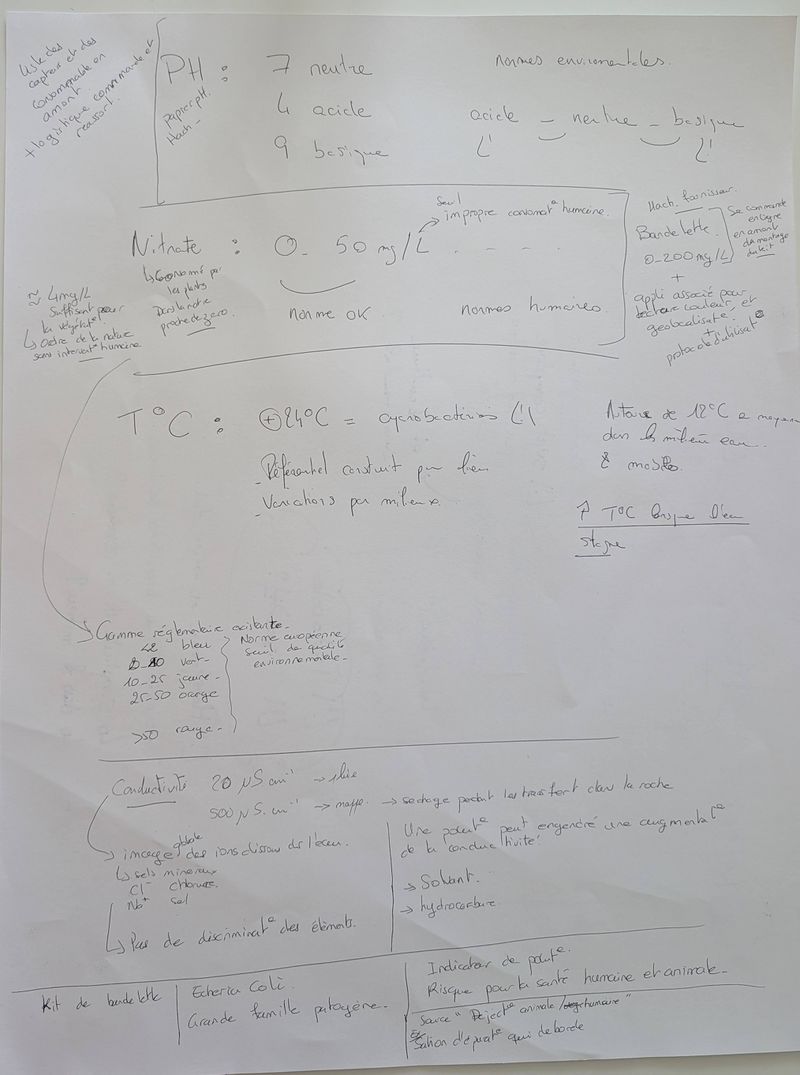 Liste des
capteur et des
consommable en
amont
+ logistique commande et
réassort.
PH :
Papier pH.
Hach -
7 neutre
4 acide
9 basique
normes enviromentales.
acide - neutre - basique
Nitrate : 0 - 50 mg/L - - - -
Seuil
impropre consomat° humaine.
↳ Consommé par
les plants
Dans la notre
proche de zero.
norme OK
normes humaines.
≈ 4mg/L
Suffisent pour
la végétat°
↳ ordre de la nature
sans intervent° humaine
Hach. fournisseur.
Bandelette.
0-200mg/L
+
appli associé pour
lecture couleur et
geolocalisat°.
+
protocole d'utilisat°
Se commande
en ligne
en amont
du montage
du kit
T°C : +24°C = cyanobacteries
- Référentiel construit par lieu
- Variations par milieux.
Autour de 12°C e moyenne
dans les milieu eau.
↑ T°C lorsque l'eau
stagne
Gamme réglementaire existante -
<2 bleu
2-10 vert -
10-25 jaune -
25-50 orange
>50 rouge -
Norme européenne
seuil de qualité
environnementale -
Conductivité 20 µS cm⁻¹ → pluie
500 µS. cm⁻¹ → nappe. → se charge pendant les transfert dans la roche
→ image globale des ions dissous ds l'eau.
↳ sels mineraux
Cl⁻ chlorure.
Na⁺ sel
↳ Pas de discriminat° des éléments.
Une pollut° peut engendré une augmentat°
de la conductivité!
→ Solvant.
→ hydrocarbure.
Kit de bandelette
Echeria Coli.
Grande famille patogène.
Indicateur de pollut°.
Risque pour la santé humaine et animale -
Source "Déject° animale / humaine"
Ex
Sation d'épurat° qui deborde